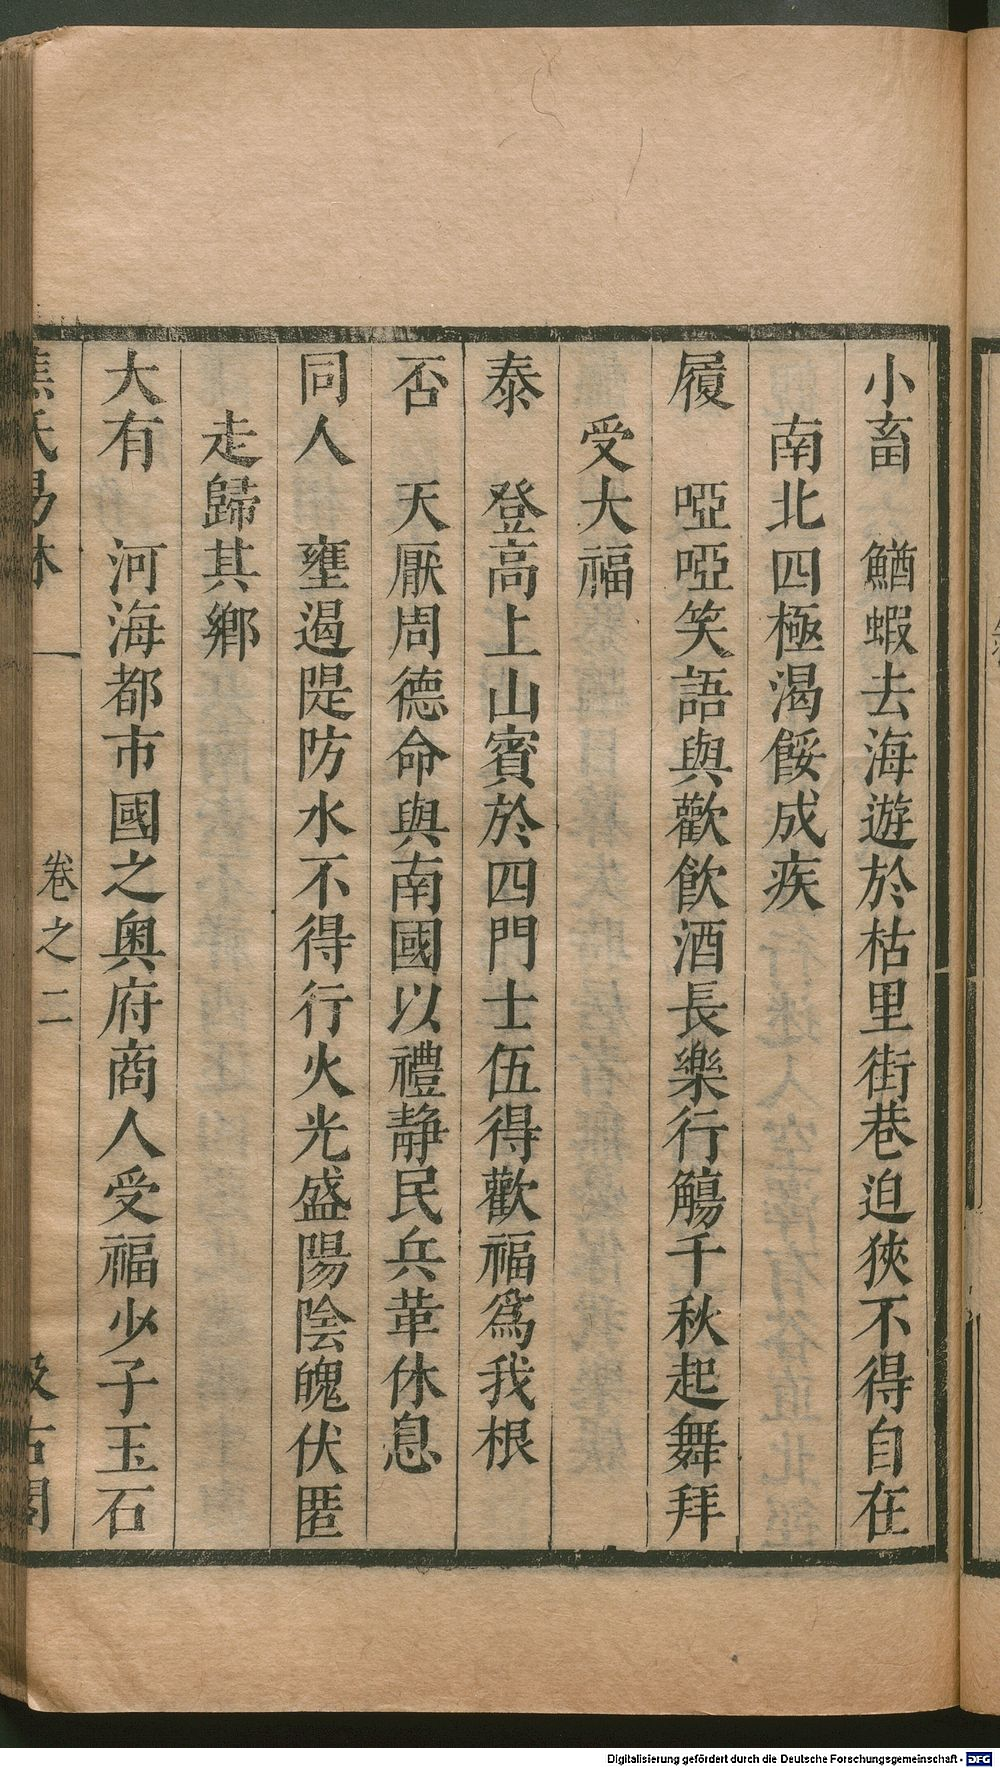 小畜　鰌蝦去海遊於枯里街巷迫狹不得自在
南北四極渴餒成疾
履　啞啞笑語與歡飲酒長樂行觴千秋起舞拜
受大福
泰　登高上山賓於四門士伍得歡福爲我根
否　天厭周德命與南國以禮靜民兵革休息
同人　壅遏隄防水不得行火光盛陽陰魄伏匿
走歸其鄉
大有　河海都市國之奧府商人受福少子玉石
焦氏易林　卷之二　汲古閣
Digitalisierung gefördert durch die Deutsche Forschungsgemeinschaft - DFG